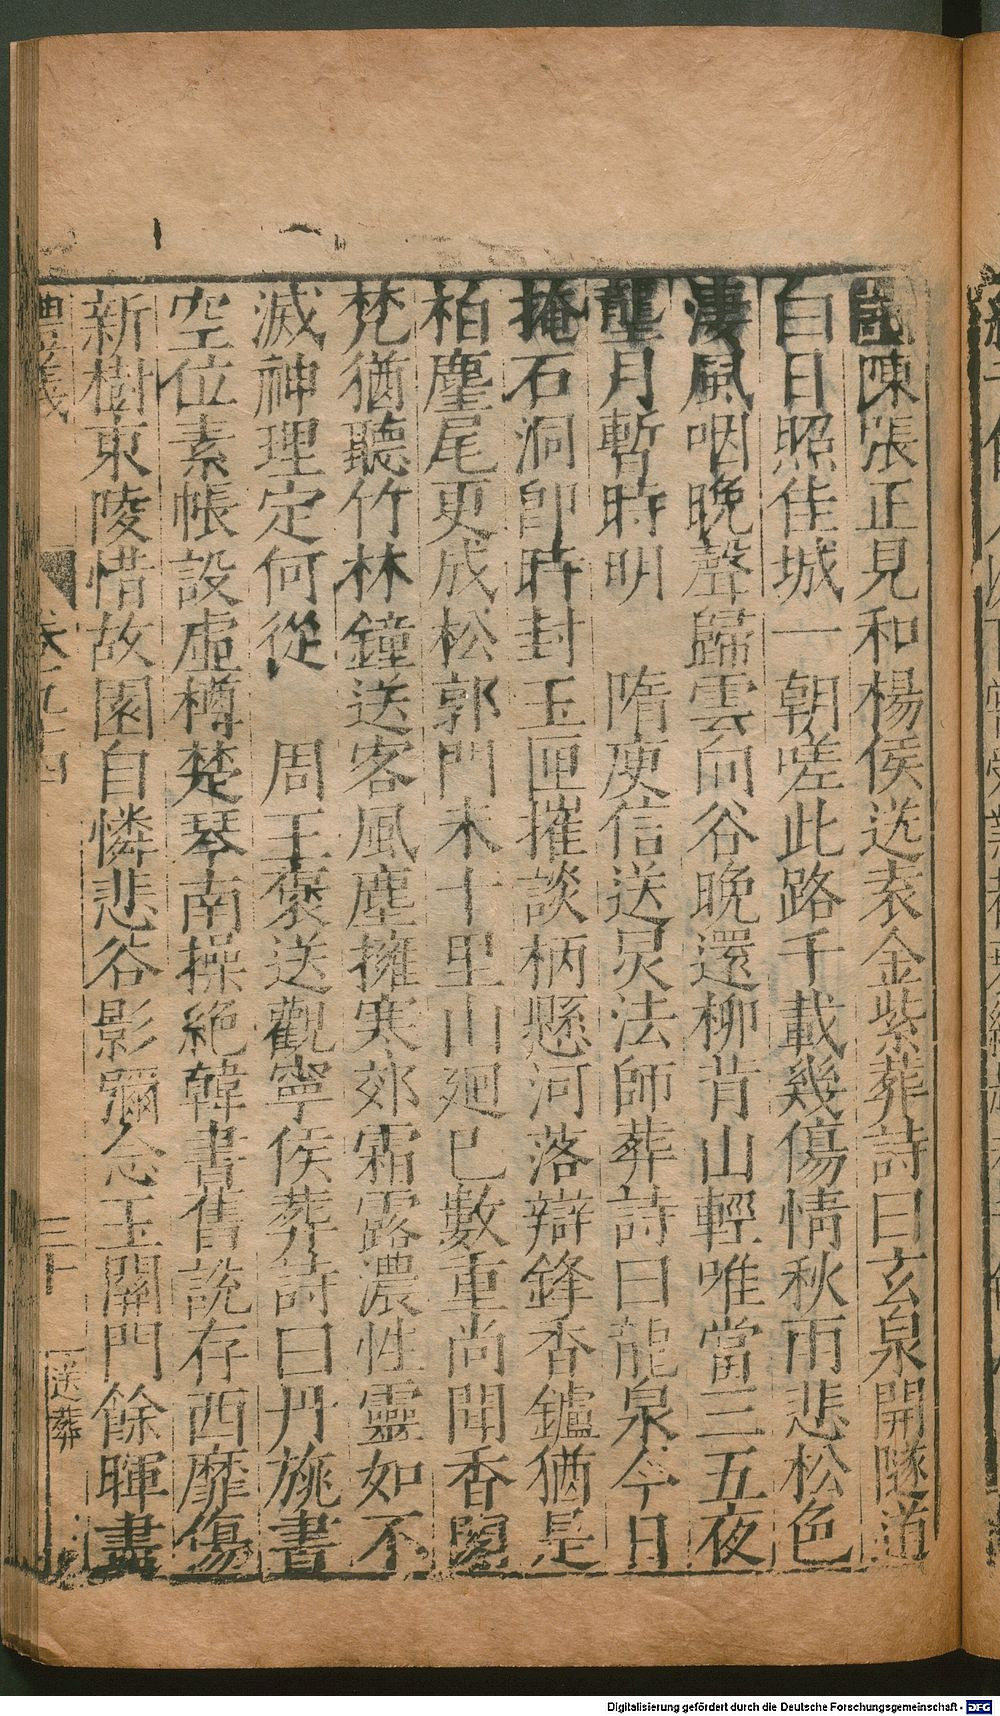 陳張正見和楊侯送袁金紫葬詩曰玄泉開隧道
白日照佳城一朝嗟此路千載幾傷情秋雨悲松色
淒風咽晚聲歸雲向谷晚還柳背山輕唯當三五夜
壟月暫時明 隋庾信送炅法師葬詩曰龍泉今日
掩石洞卽時封玉匣摧談柄懸河落辯鋒香鑪猶是
柏塵尾更成松郭門未十里山廻已數重尚聞香閣
梵猶聽竹林鐘送客風塵擁寒郊霜露濃性靈如不
滅神理定何從 周王褒送觀寧侯葬詩曰丹旐書
空位素帳設虛樽楚琴南操絕韓書舊說存西靡傷
新樹東陵惜故園自憐悲谷影彌念玉關門餘暉盡
禮義 卷五十四 三十 送葬
Digitalisierung gefördert durch die Deutsche Forschungsgemeinschaft - DFG